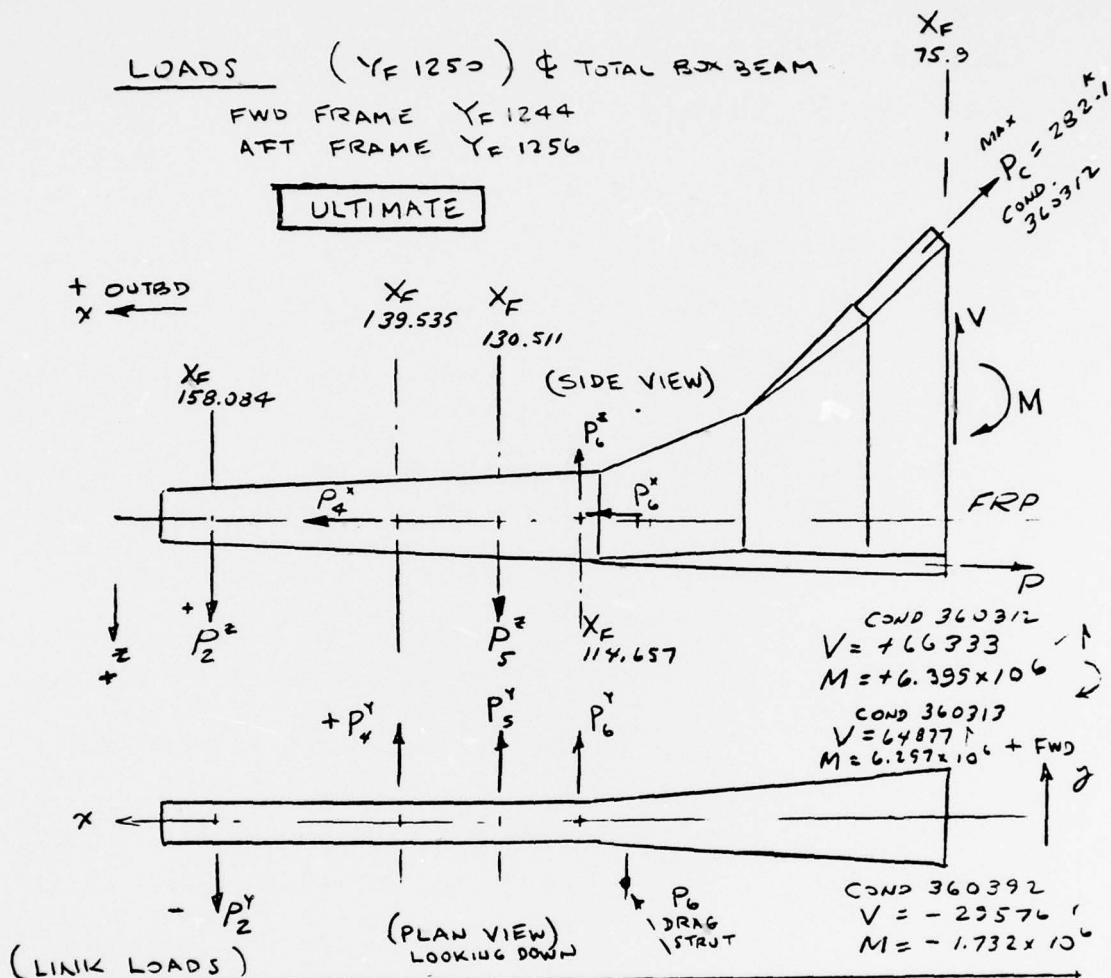 LOADS (Y_F 1250) ℄ TOTAL BOX BEAM
FWD FRAME Y_F 1244
AFT FRAME Y_F 1256
ULTIMATE
X_F
75.9
MAX
P_C = 282.1^K
COND.
360312
+ OUTBD
x
X_F
139.535
X_F
130.511
X_F
158.084
(SIDE VIEW)
V
M
P_6^z
P_4^x
P_6^x
FRP
P
z
+
+
P_2^z
P_5^z
X_F
114.657
COND 360312
V = +66333
M = +6.395x10^6
COND 360313
V = 64877
M = 6.297x10^6
+ FWD
y
+P_4^Y
P_5^Y
P_6^Y
x
- P_2^Y
(PLAN VIEW)
LOOKING DOWN
P_6
DRAG
STRUT
COND 360392
V = -29576
M = -1.732x10^6
(LINK LOADS)